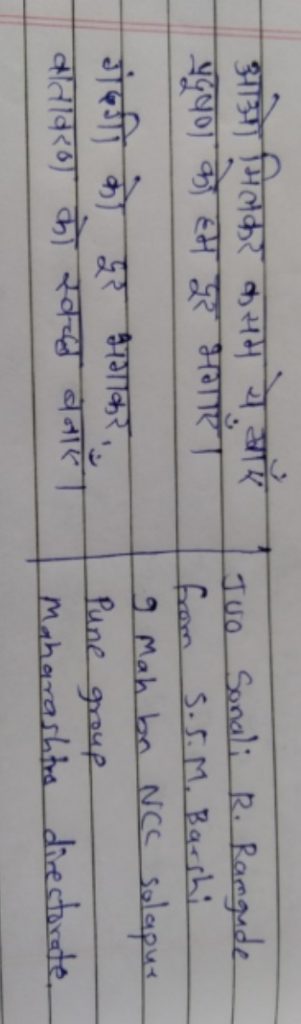 आओ मिलकर कसम ये खाएँ
प्रदुषण को हम दूर भगाएँ।
गंदगी को दूर भगाकर,
वातावरण को स्वच्छ बनाएँ।
JUO Sonali R. Rangade
from S.S.M. Barshi
9 Mah bn NCC Solapur
Pune group
Maharashtra directorate.